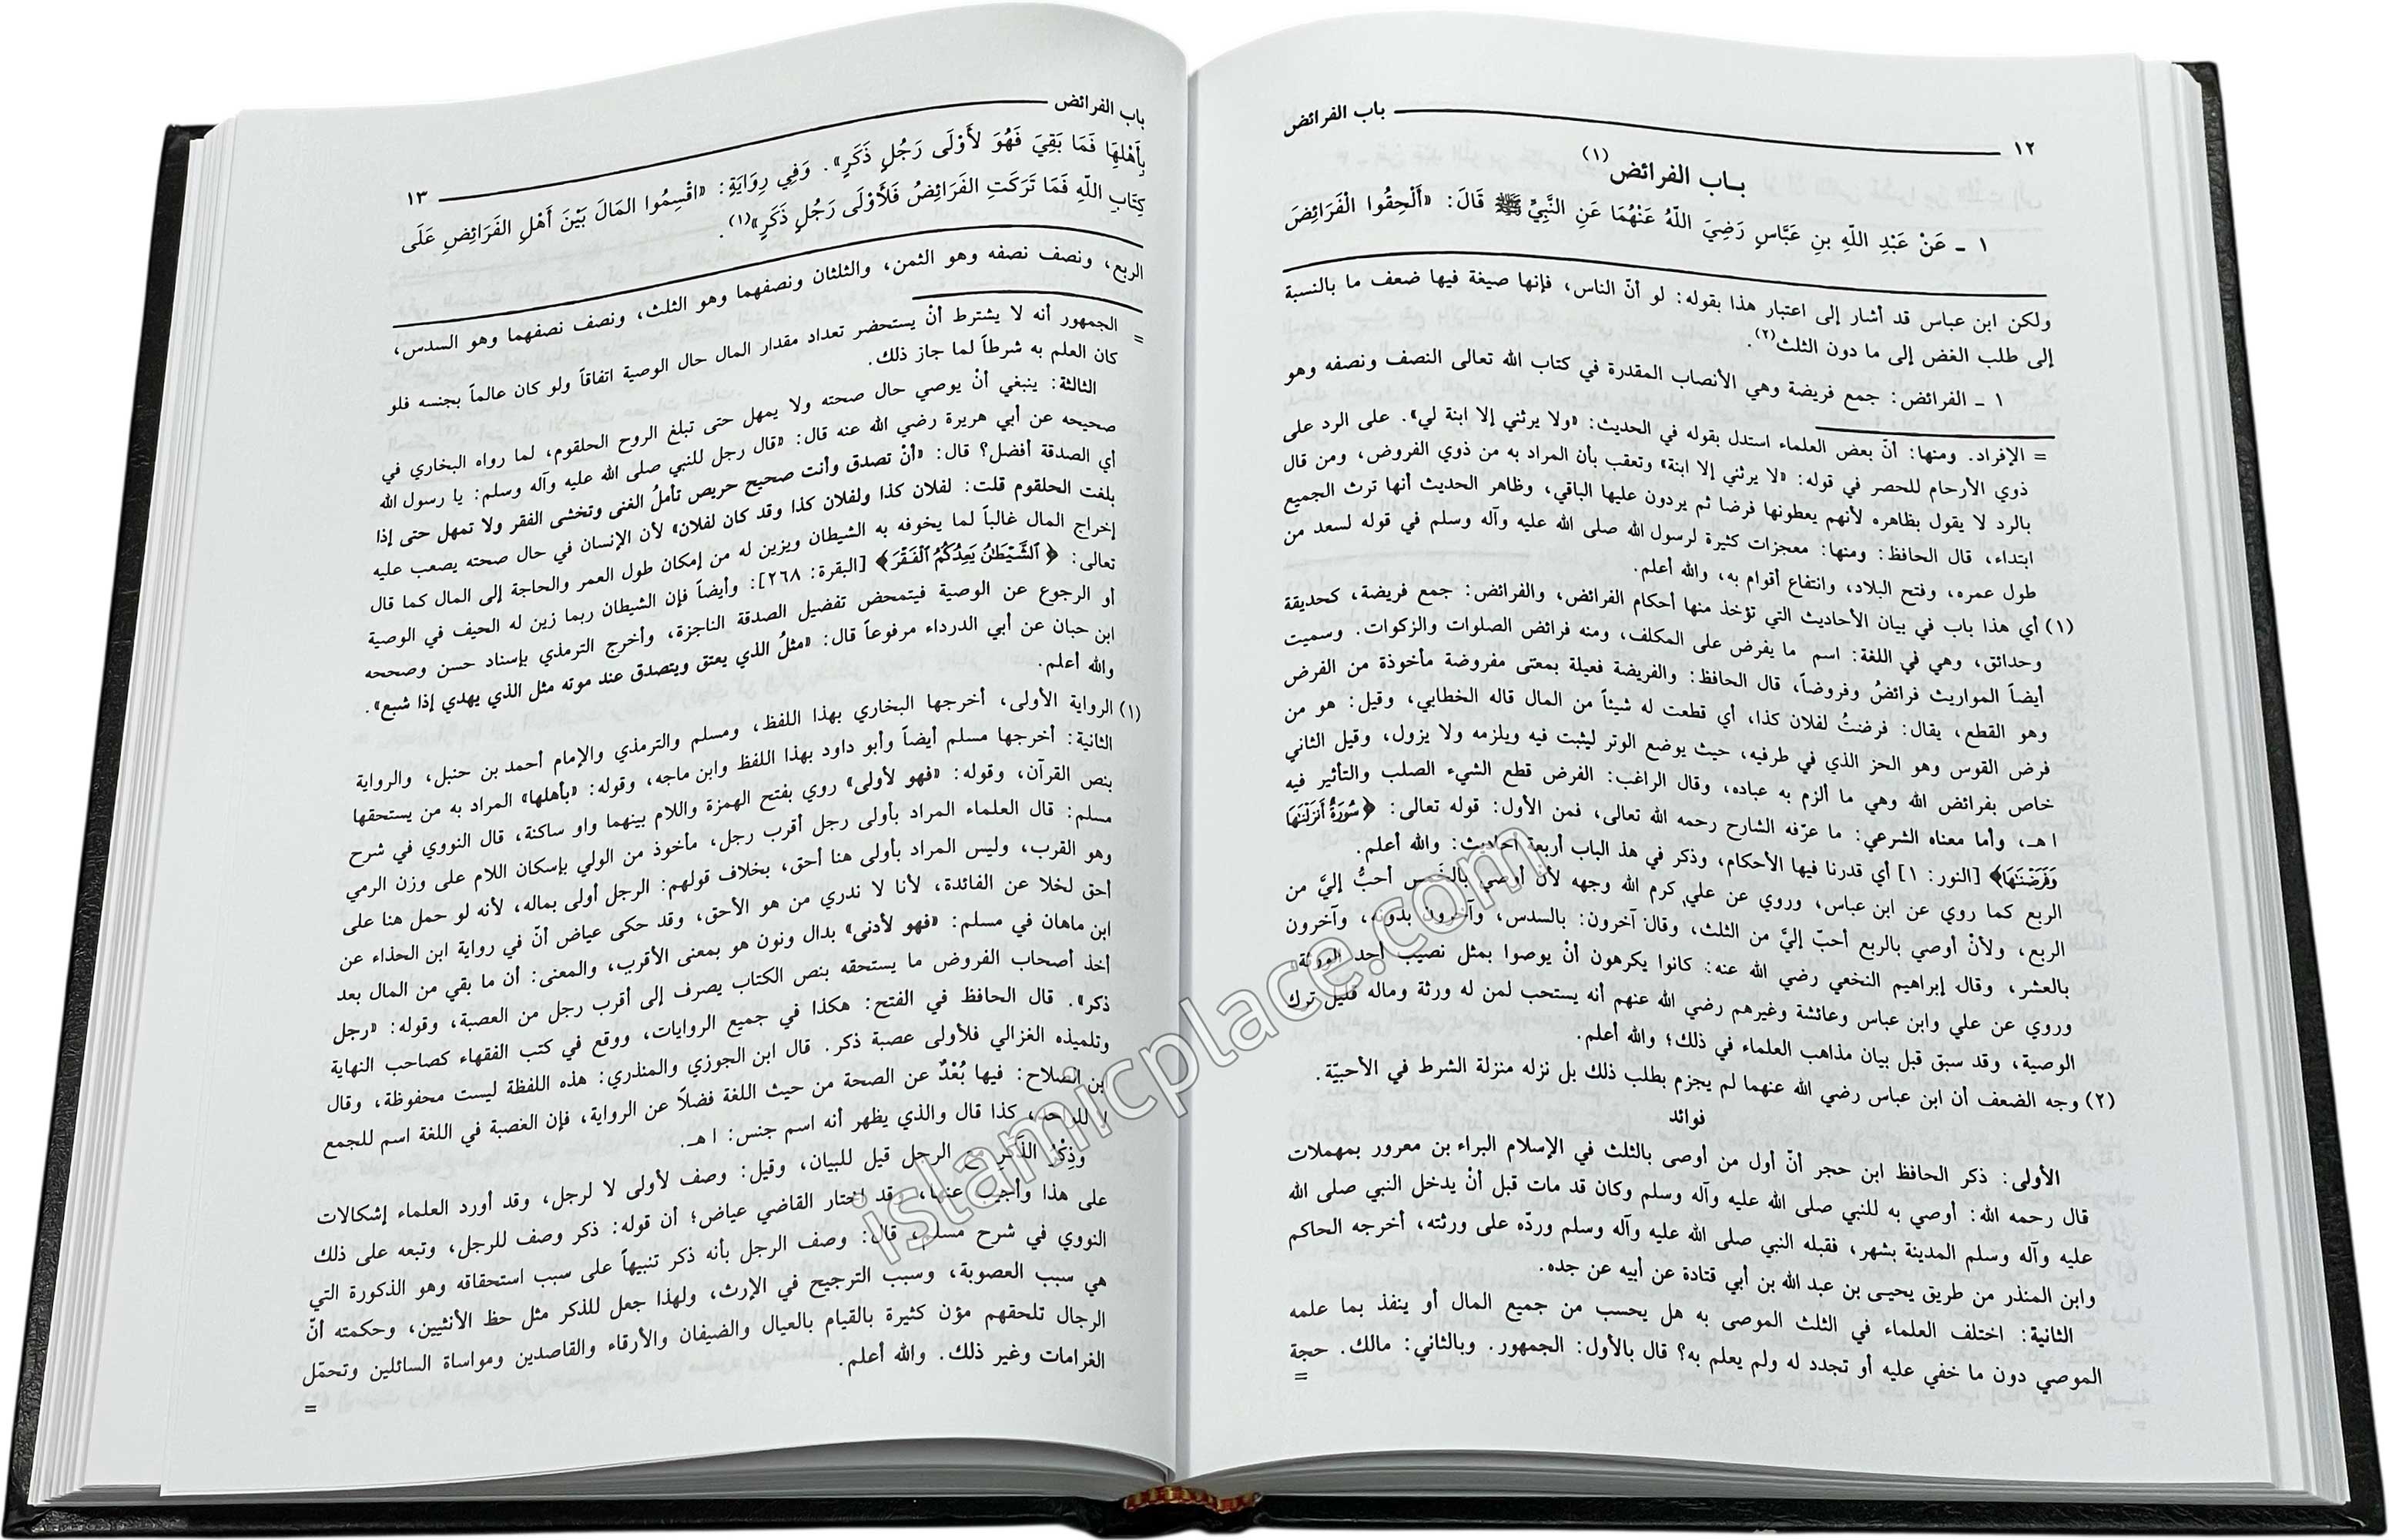 باب الفرائض
١٢
بـاب الفرائض (١)
١ ـ عَنْ عَبْدِ اللّهِ بنِ عَبَّاسٍ رَضِيَ اللّهُ عَنْهُمَا عَنِ النَّبِيِّ ﷺ قَالَ: «أَلْحِقُوا الْفَرَائِضَ
ولكن ابن عباس قد أشار إلى اعتبار هذا بقوله: لو أنّ الناس، فإنها صيغة فيها ضعف ما بالنسبة
إلى طلب الغض إلى ما دون الثلث(٢).
١ ـ الفرائض: جمع فريضة وهي الأنصاب المقدرة في كتاب الله تعالى النصف ونصفه وهو
= الإفراد. ومنها: أنّ بعض العلماء استدل بقوله في الحديث: «ولا يرثني إلا ابنة لي». على الرد على
ذوي الأرحام للحصر في قوله: «لا يرثني إلا ابنة» وتعقب بأن المراد به من ذوي الفروض، ومن قال
بالرد لا يقول بظاهره لأنهم يعطونها فرضا ثم يردون عليها الباقي، وظاهر الحديث أنها ترث الجميع
ابتداء، قال الحافظ: ومنها: معجزات كثيرة لرسول الله صلى الله عليه وآله وسلم في قوله لسعد من
طول عمره، وفتح البلاد، وانتفاع أقوام به، والله أعلم.
(١) أي هذا باب في بيان الأحاديث التي تؤخذ منها أحكام الفرائض، والفرائض: جمع فريضة، كحديقة
وحدائق، وهي في اللغة: اسم ما يفرض على المكلف، ومنه فرائض الصلوات والزكوات. وسميت
أيضاً المواريث فرائضُ وفروضاً، قال الحافظ: والفريضة فعيلة بمعنى مفروضة مأخوذة من الفرض
وهو القطع، يقال: فرضتُ لفلان كذا، أي قطعت له شيئاً من المال قاله الخطابي، وقيل: هو من
فرض القوس وهو الحز الذي في طرفيه، حيث يوضع الوتر ليثبت فيه ويلزمه ولا يزول، وقيل الثاني
خاص بفرائض الله وهي ما ألزم به عباده، وقال الراغب: الفرض قطع الشيء الصلب والتأثير فيه
ا هـ، وأما معناه الشرعي: ما عرّفه الشارح رحمه الله تعالى، فمن الأول: قوله تعالى: ﴿سُورَةٌ أَنزَلْنَٰهَا
وَفَرَضْنَٰهَا﴾ [النور: ١] أي قدرنا فيها الأحكام، وذكر في هذ الباب أربعة أحاديث: والله أعلم.
الربع كما روي عن ابن عباس، وروي عن علي كرم الله وجهه لأنْ أوصي بالخمس أحبُّ إليَّ من
الربع، ولأنْ أوصي بالربع أحبّ إليَّ من الثلث، وقال آخرون: بالسدس، وآخرون بدونه، وآخرون
بالعشر، وقال إبراهيم النخعي رضي الله عنه: كانوا يكرهون أنْ يوصوا بمثل نصيب أحد الورثة،
وروي عن علي وابن عباس وعائشة وغيرهم رضي الله عنهم أنه يستحب لمن له ورثة وماله قليل ترك
الوصية، وقد سبق قبل بيان مذاهب العلماء في ذلك؛ والله أعلم.
(٢) وجه الضعف أن ابن عباس رضي الله عنهما لم يجزم بطلب ذلك بل نزله منزلة الشرط في الأحبيّة.
فوائد
الأولى: ذكر الحافظ ابن حجر أنّ أول من أوصى بالثلث في الإسلام البراء بن معرور بمهملات
قال رحمه الله: أوصي به للنبي صلى الله عليه وآله وسلم وكان قد مات قبل أنْ يدخل النبي صلى الله
عليه وآله وسلم المدينة بشهر، فقبله النبي صلى الله عليه وآله وسلم وردّه على ورثته، أخرجه الحاكم
وابن المنذر من طريق يحيى بن عبد الله بن أبي قتادة عن أبيه عن جده.
الثانية: اختلف العلماء في الثلث الموصى به هل يحسب من جميع المال أو ينفذ بما علمه
الموصي دون ما خفي عليه أو تجدد له ولم يعلم به؟ قال بالأول: الجمهور. وبالثاني: مالك. حجة
=
باب الفرائض
١٣
بِأَهْلِهَا فَمَا بَقِيَ فَهُوَ لأَوْلَى رَجُلٍ ذَكَرٍ». وَفِي رِوَايَةٍ: «اقْسِمُوا المَالَ بَيْنَ أَهْلِ الفَرَائِضِ عَلَى
كِتَابِ اللّهِ فَمَا تَرَكَتِ الفَرَائِضُ فَلأَوْلَى رَجُلٍ ذَكَرٍ»(١).
الربع، ونصف نصفه وهو الثمن، والثلثان ونصفهما وهو الثلث، ونصف نصفهما وهو السدس،
= الجمهور أنه لا يشترط أنْ يستحضر تعداد مقدار المال حال الوصية اتفاقاً ولو كان عالماً بجنسه فلو
كان العلم به شرطاً لما جاز ذلك.
الثالثة: ينبغي أنْ يوصي حال صحته ولا يمهل حتى تبلغ الروح الحلقوم، لما رواه البخاري في
صحيحه عن أبي هريرة رضي الله عنه قال: «قال رجل للنبي صلى الله عليه وآله وسلم: يا رسول الله
أي الصدقة أفضل؟ قال: «أنْ تصدق وأنت صحيح حريص تأملُ الغنى وتخشى الفقر ولا تمهل حتى إذا
بلغت الحلقوم قلت: لفلان كذا ولفلان كذا وقد كان لفلان» لأن الإنسان في حال صحته يصعب عليه
إخراج المال غالباً لما يخوفه به الشيطان ويزين له من إمكان طول العمر والحاجة إلى المال كما قال
تعالى: ﴿الشَّيْطَٰنُ يَعِدُكُمُ الْفَقْرَ﴾ [البقرة: ٢٦٨]: وأيضاً فإن الشيطان ربما زين له الحيف في الوصية
أو الرجوع عن الوصية فيتمحض تفضيل الصدقة الناجزة، وأخرج الترمذي بإسناد حسن وصححه
ابن حبان عن أبي الدرداء مرفوعاً قال: «مثلُ الذي يعتق ويتصدق عند موته مثل الذي يهدي إذا شبع».
والله أعلم.
(١) الرواية الأولى، أخرجها البخاري بهذا اللفظ، ومسلم والترمذي والإمام أحمد بن حنبل، والرواية
الثانية: أخرجها مسلم أيضاً وأبو داود بهذا اللفظ وابن ماجه، وقوله: «بأهلها» المراد به من يستحقها
بنص القرآن، وقوله: «فهو لأولى» روي بفتح الهمزة واللام بينهما واو ساكنة، قال النووي في شرح
مسلم: قال العلماء المراد بأولى رجل أقرب رجل، مأخوذ من الولي بإسكان اللام على وزن الرمي
وهو القرب، وليس المراد بأولى هنا أحق، بخلاف قولهم: الرجل أولى بماله، لأنه لو حمل هنا على
أحق لخلا عن الفائدة، لأنا لا ندري من هو الأحق، وقد حكى عياض أنّ في رواية ابن الحذاء عن
ابن ماهان في مسلم: «فهو لأدنى» بدال ونون هو بمعنى الأقرب، والمعنى: أن ما بقي من المال بعد
أخذ أصحاب الفروض ما يستحقه بنص الكتاب يصرف إلى أقرب رجل من العصبة، وقوله: «رجل
ذكر». قال الحافظ في الفتح: هكذا في جميع الروايات، ووقع في كتب الفقهاء كصاحب النهاية
وتلميذه الغزالي فلأولى عصبة ذكر. قال ابن الجوزي والمنذري: هذه اللفظة ليست محفوظة، وقال
بن الصلاح: فيها بُعْدٌ عن الصحة من حيث اللغة فضلاً عن الرواية، فإن العصبة في اللغة اسم للجمع
لا للواحد، كذا قال والذي يظهر أنه اسم جنس: ا هـ.
وذِكْرُ الذَكَر مع الرجل قيل للبيان، وقيل: وصف لأولى لا لرجل، وقد أورد العلماء إشكالات
على هذا وأجيب عنها، وقد اختار القاضي عياض؛ أن قوله: ذكر وصف للرجل، وتبعه على ذلك
النووي في شرح مسلم، قال: وصف الرجل بأنه ذكر تنبيهاً على سبب استحقاقه وهو الذكورة التي
هي سبب العصوبة، وسبب الترجيح في الإرث، ولهذا جعل للذكر مثل حظ الأنثيين، وحكمته أنّ
الرجال تلحقهم مؤن كثيرة بالقيام بالعيال والضيفان والأرقاء والقاصدين ومواساة السائلين وتحمّل
الغرامات وغير ذلك. والله أعلم.
=
islamicplace.com